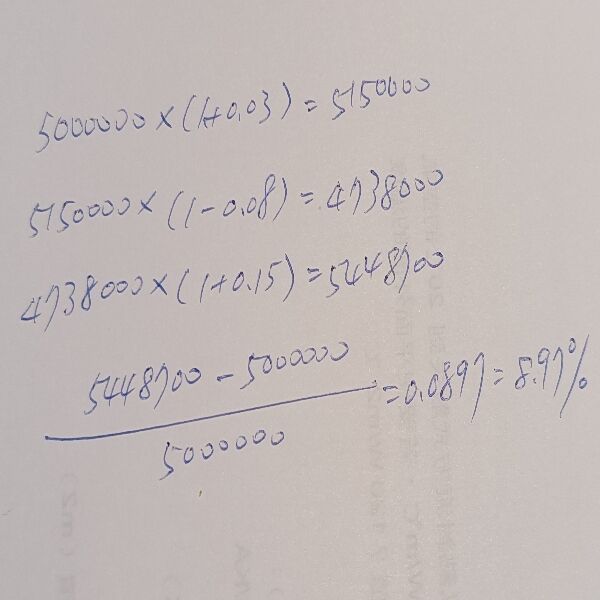 5000000×(1+0.03)=5150000
5150000×(1-0.08)=4738000
4738000×(1+0.15)=5448700
5448700-5000000
=0.0897=8.97%
5000000